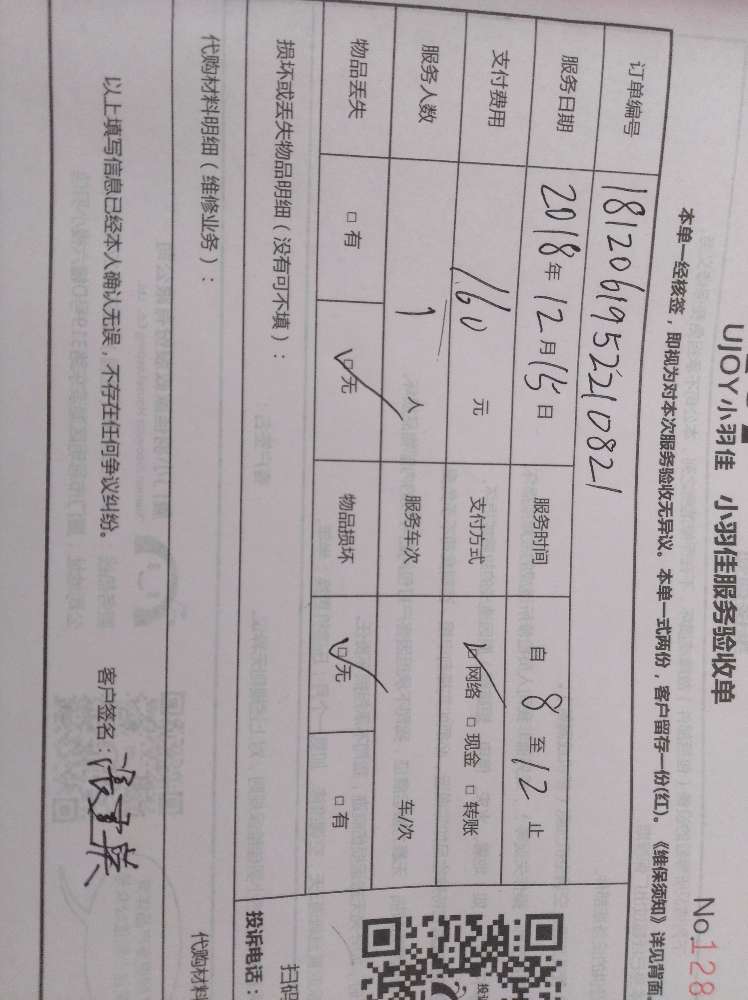 UJOY小羽佳 小羽佳服务验收单
No.128
本单一经核签，即视为对本次服务验收无异议。本单一式两份，客户留存一份(红)。《维保须知》详见背面
订单编号 1812061952210821
服务日期 2018年12月15日 服务时间 自8至12止
支付费用 160元 支付方式 □网络 □现金 □转账
服务人数 1人 服务车次 车/次
物品丢失 □有 □无 物品损坏 □无 □有
损坏或丢失物品明细（没有可不填）：
代购材料明细（维修业务）：
以上填写信息已经本人确认无误，不存在任何争议纠纷。 客户签名：
投诉电话：
扫码
代购材料